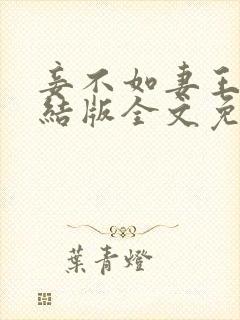 妾不如妻王
結版全文免
葉青燈